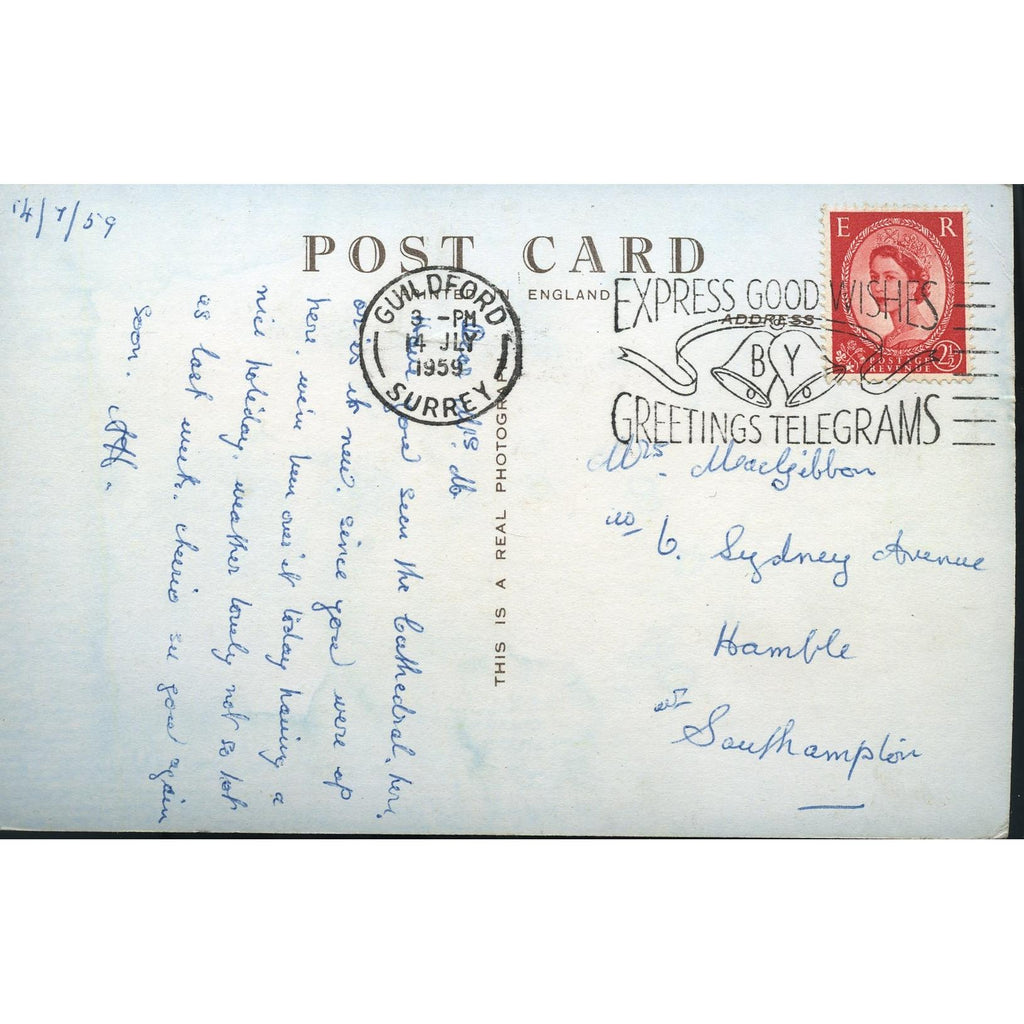 14/7/59
POST CARD
PRINTED IN ENGLAND
ADDRESS
THIS IS A REAL PHOTOGRAPH
GUILDFORD
3 - PM
14 JLY
1959
SURREY
EXPRESS GOOD WISHES
BY
GREETINGS TELEGRAMS
E R
POSTAGE
REVENUE
2½
Dear Mrs. Mc
Have you seen the Cathedral, here,
or is it new. since you were up
here. we've been over it today having a
nice holiday. weather lovely not so hot
as last week. cheerio see you again
soon. AH.
Mrs. MacGibbon
6. Sydney Avenue
Hamble
Southampton